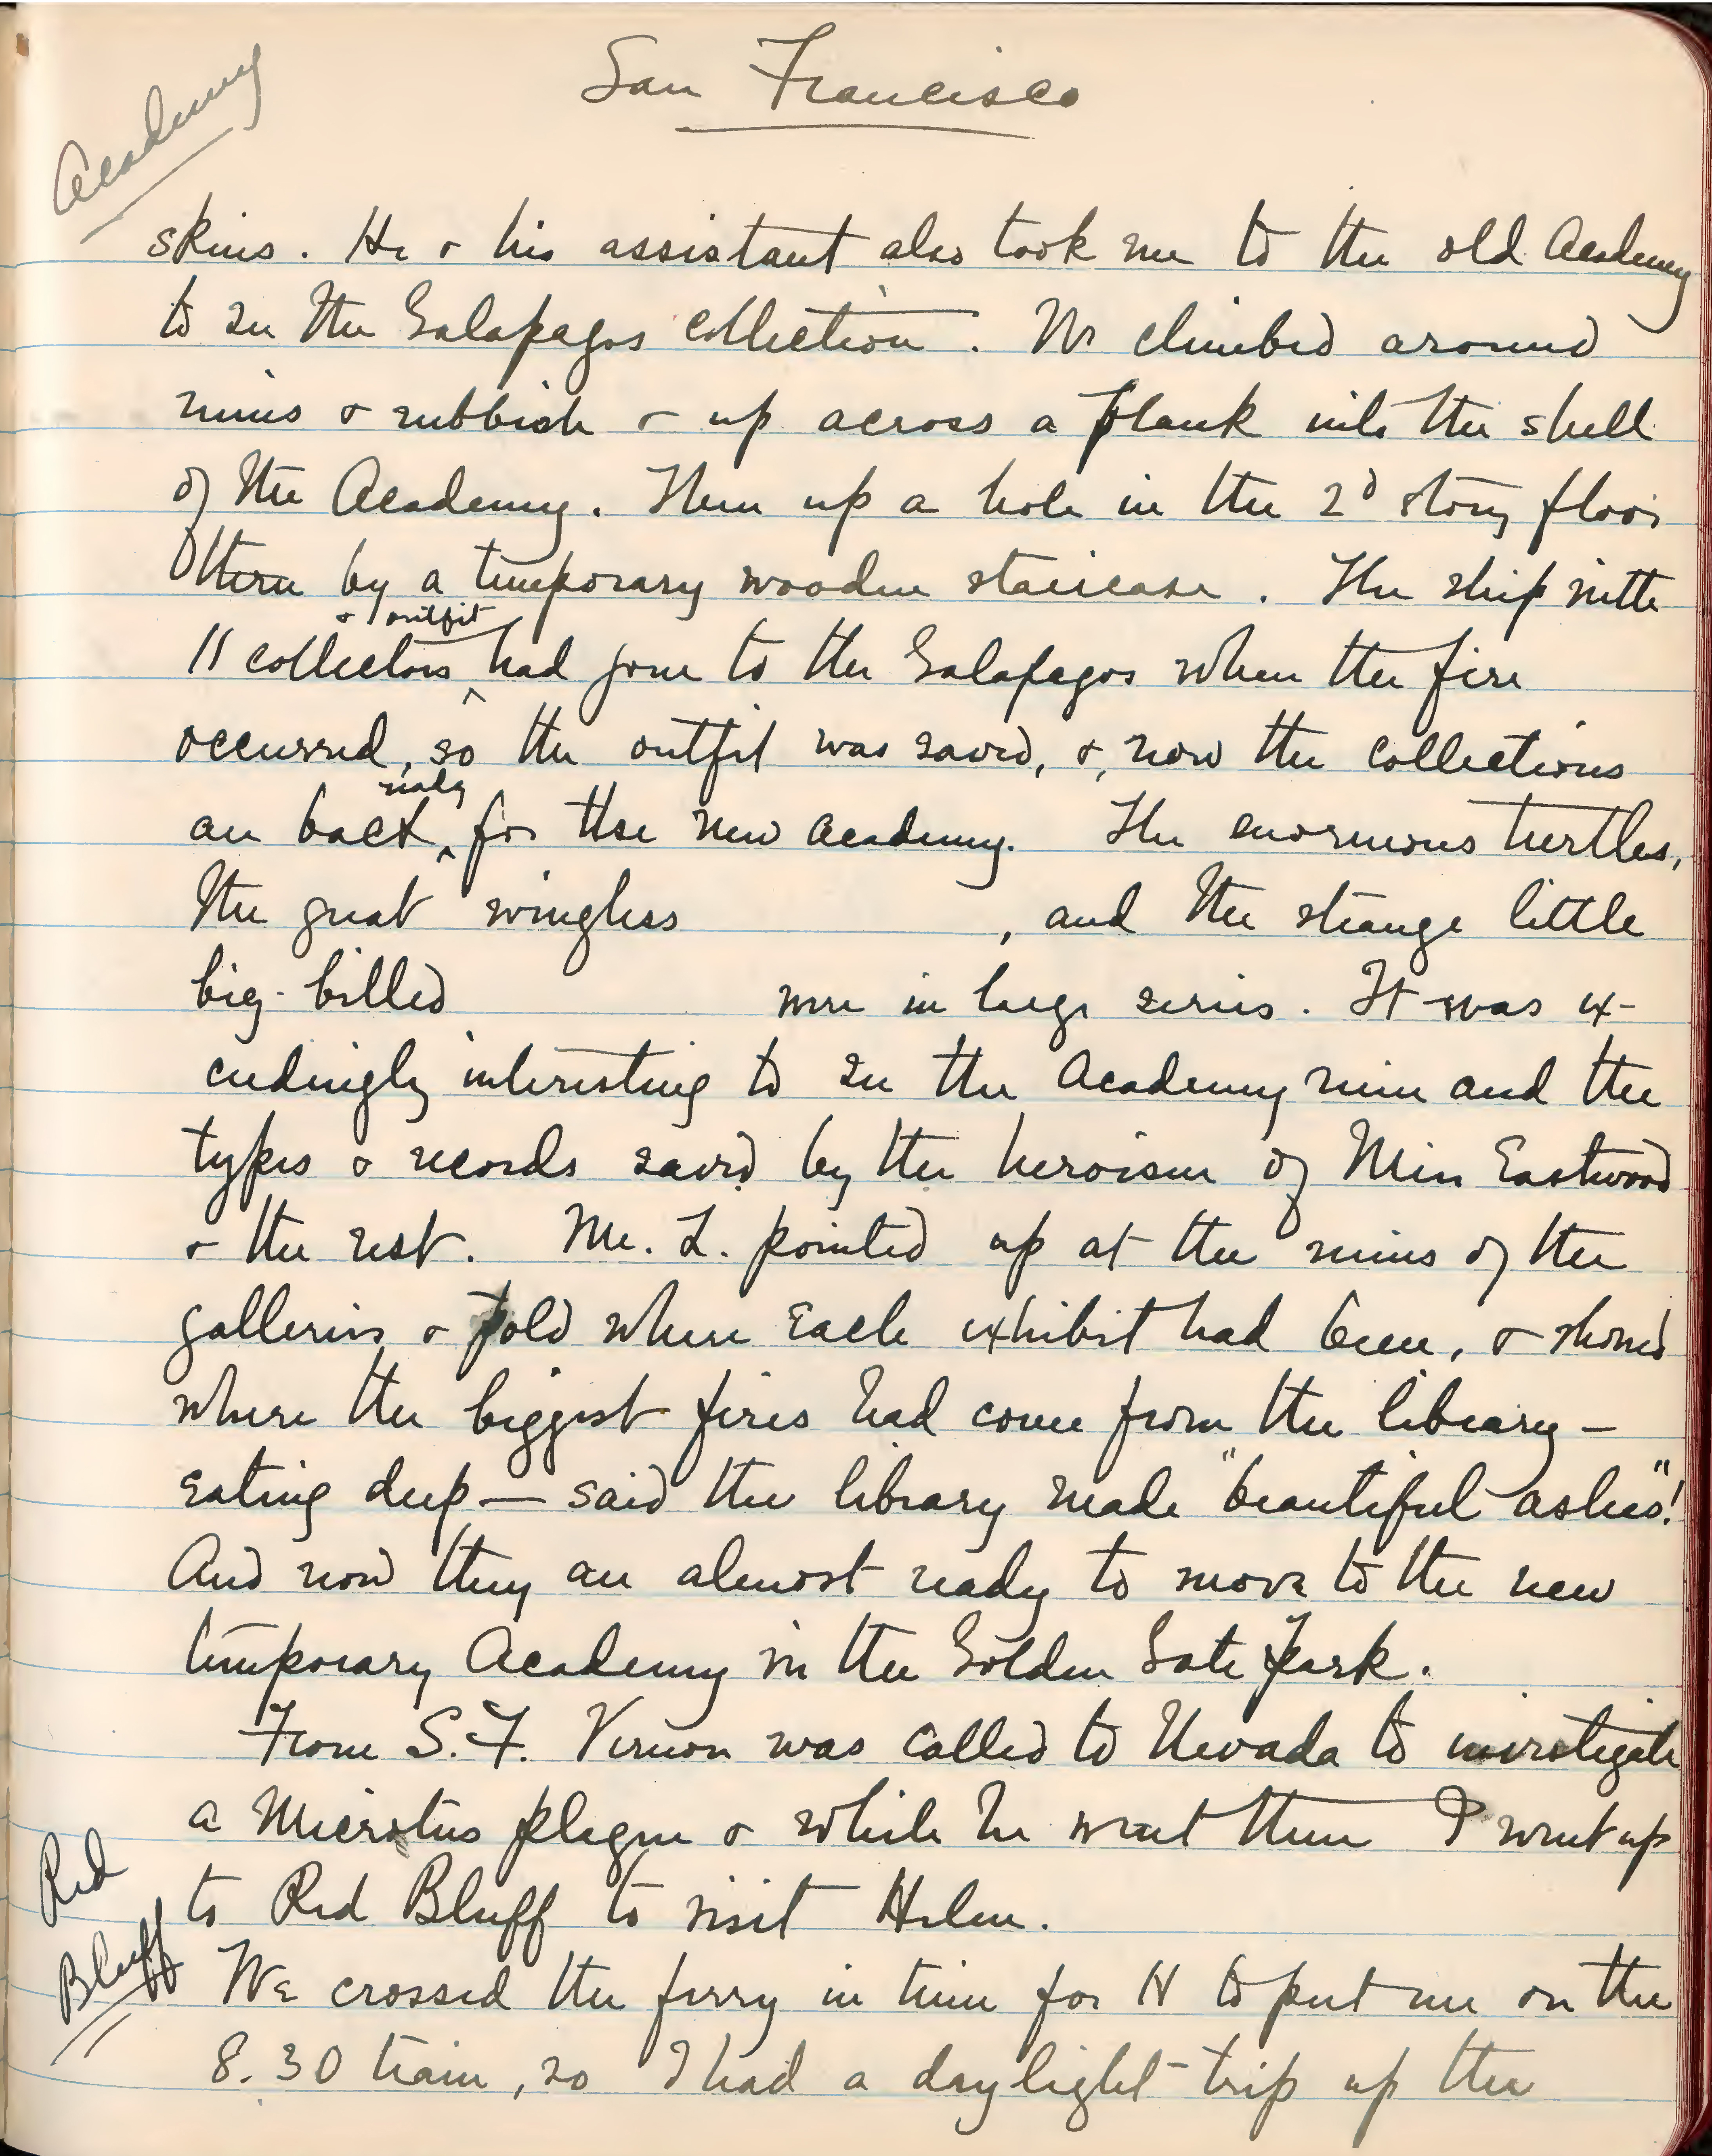 San Francisco
Academy
skins. He & his assistant also took me to the old Academy
to see the Galapagos collection. We climbed around
ruins & rubbish & up across a plank into the shell
of the Academy. Then up a hole in the 2d story floor
there by a temporary wooden staircase. The ship with
& outfit
11 collectors ^ had gone to the Galapagos when the fire
occurred, so the outfit was saved, &, now the collections
ready
are back ^ for the new Academy. The enormous turtles,
the great wingless , and the strange little
big-billed were in large series. It was ex-
ceedingly interesting to see the Academy ruin and the
types & records saved by the heroism of Miss Eastwood
& the rest. Mr. L. pointed up at the ruins of the
galleries & told where each exhibit had been, & showed
where the biggest fires had come from the library -
eating deep — said the library made "beautiful ashes"!
And now they are almost ready to move to the new
temporary Academy in the Golden Gate Park.
From S.F. Vernon was called to Nevada to investigate
a Microtus plague & while he went there I went up
to Red Bluff to visit Helen.
Red
Bluff
We crossed the ferry in time for V to put me on the
8.30 train, so I had a daylight trip up the